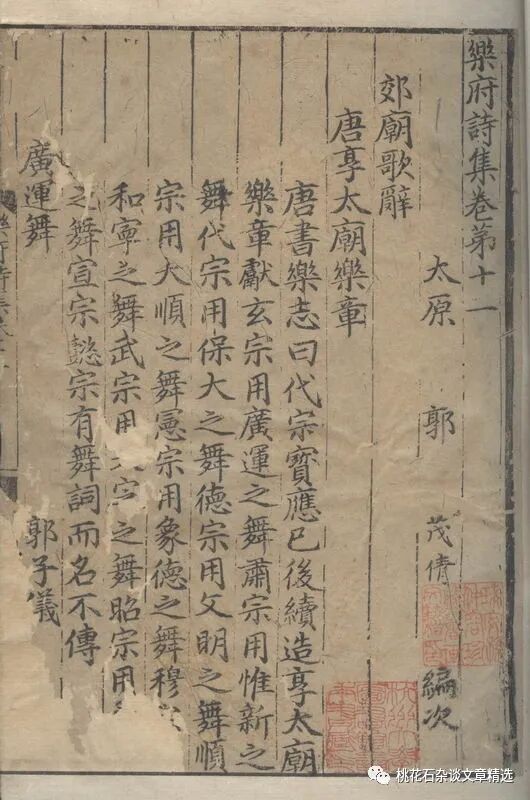 樂府詩集卷第十一
太原 郭 茂倩 編次
郊廟歌辭
唐享太廟樂章
唐書樂志曰代宗寶應已後續造享太廟
樂章獻玄宗用廣運之舞肅宗用惟新之
舞代宗用保大之舞德宗用文明之舞順
宗用大順之舞憲宗用象德之舞穆
和寧之舞武宗用 之舞昭宗用
之舞宣宗懿宗有舞詞而名不傳
廣運舞 郭子儀
桃花石杂谈文章精选